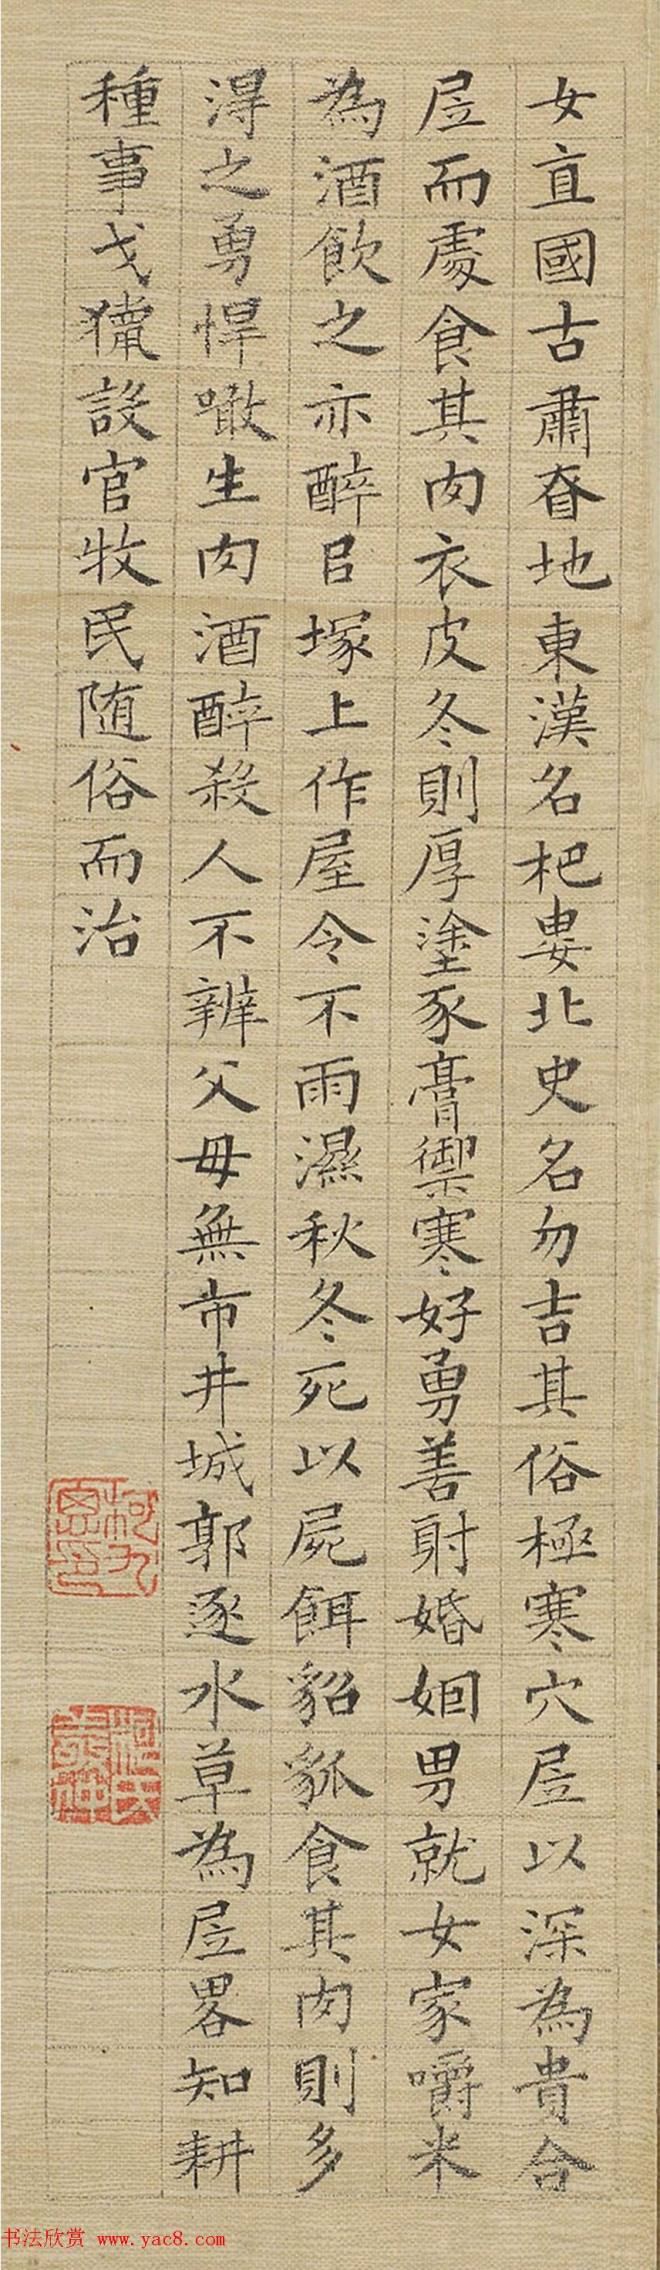 女直國古肅眘地東漢名杷婁北史名勿吉其俗極寒穴㞐以深為貴合
㞐而處食其肉衣皮冬則厚塗豕膏禦寒好勇善射婚姻男就女家嚼米
為酒飲之亦醉㠯塚上作屋令不雨濕秋冬死以屍餌貂狐食其肉則多
淂之勇悍噉生肉酒醉殺人不辨父母無市井城郭逐水草為㞐畧知耕
種事弋獵設官牧民随俗而治
柯九思印
书法欣赏 www.yac8.com